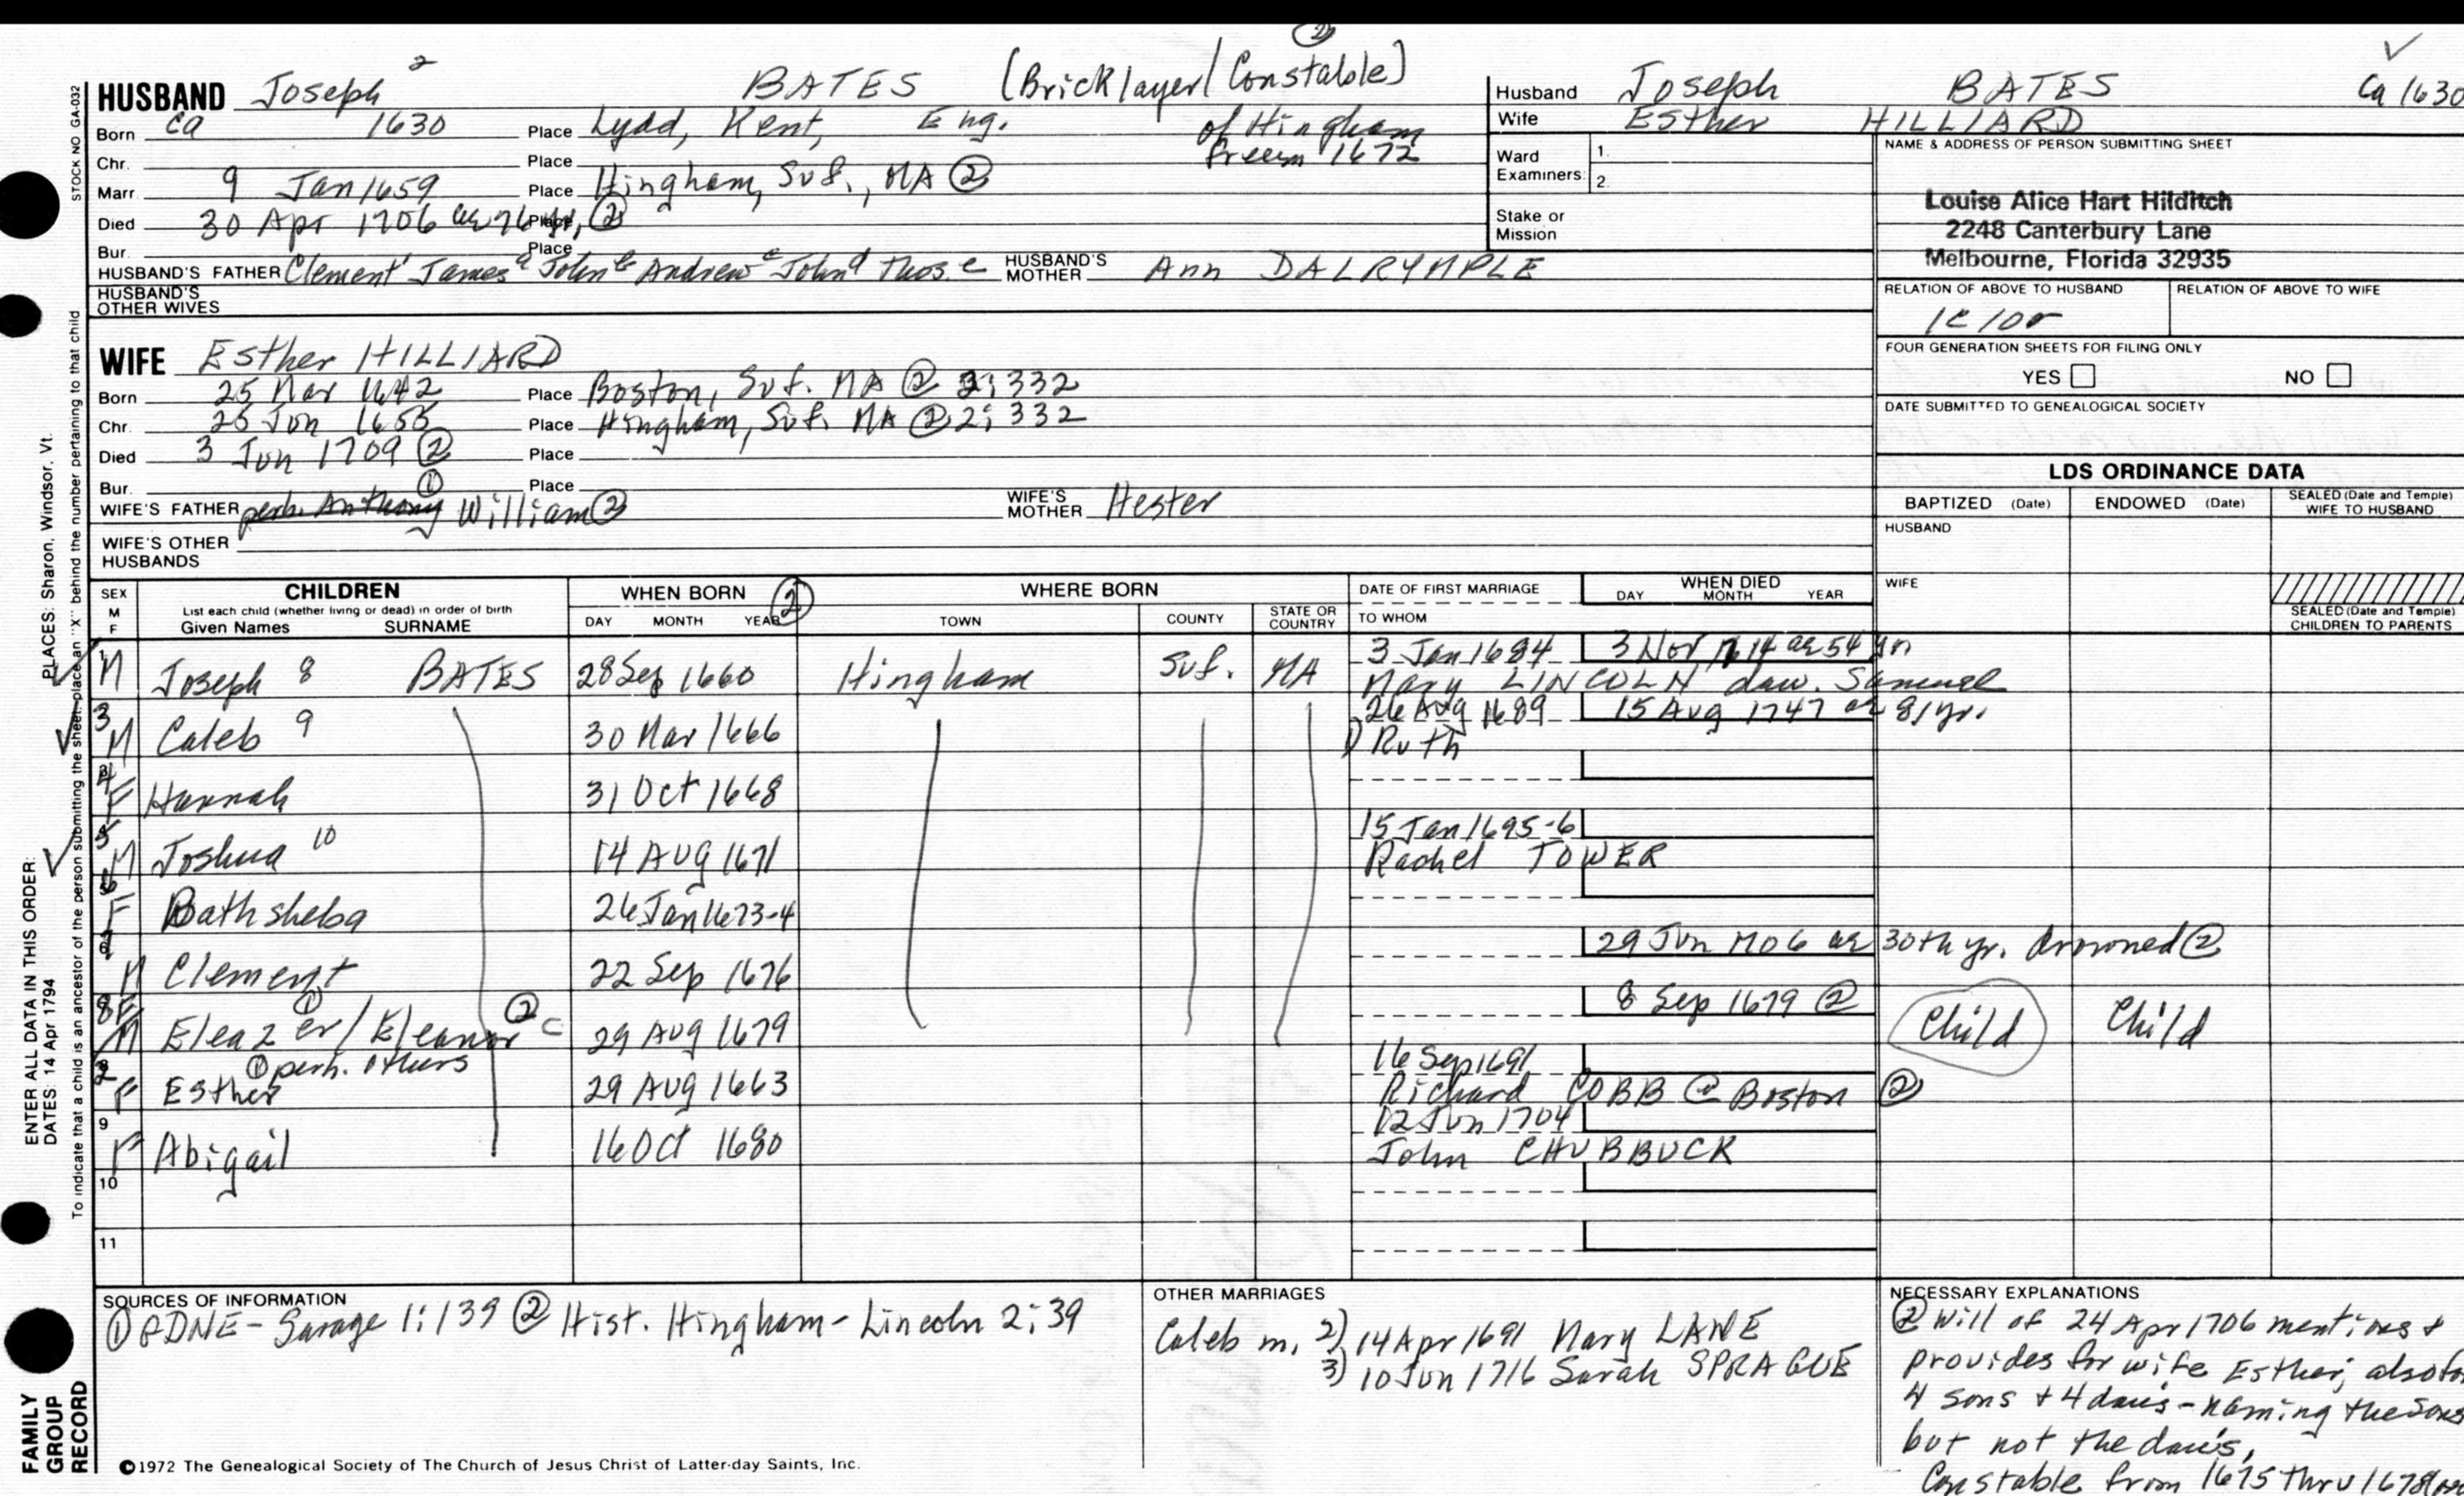 ②
HUSBAND Joseph ² BATES (Bricklayer/Constable)
Born ca 1630 Place Lydd, Kent, Eng. of Hingham
Chr. Place freem 1672
Marr. 9 Jan 1659 Place Hingham, Suf., MA ②
Died 30 Apr 1706 ae 76 yr, ② Place
Bur. Place
HUSBAND'S FATHER Clement¹ James ᵃ John ᵇ Andrew ᶜ John ᵈ Thos. ᵉ HUSBAND'S MOTHER Ann DALRYMPLE
HUSBAND'S OTHER WIVES
WIFE Esther HILLIARD
Born 25 Mar 1642 Place Boston, Suf. MA ② 2; 332
Chr. 25 Jun 1655 Place Hingham, Suf. MA ② 2; 332
Died 3 Jun 1709 ② Place
Bur. ① Place
WIFE'S FATHER perh. Anthony William ② WIFE'S MOTHER Hester
WIFE'S OTHER HUSBANDS
Husband Joseph BATES Ca 1630
Wife Esther HILLIARD
Ward Examiners: 1. 2.
Stake or Mission
NAME & ADDRESS OF PERSON SUBMITTING SHEET
Louise Alice Hart Hilditch
2248 Canterbury Lane
Melbourne, Florida 32935
RELATION OF ABOVE TO HUSBAND RELATION OF ABOVE TO WIFE
1c 10r
FOUR GENERATION SHEETS FOR FILING ONLY
YES NO
DATE SUBMITTED TO GENEALOGICAL SOCIETY
LDS ORDINANCE DATA
BAPTIZED (Date) ENDOWED (Date) SEALED (Date and Temple) WIFE TO HUSBAND
HUSBAND
WIFE
SEALED (Date and Temple) CHILDREN TO PARENTS
SEX M F CHILDREN WHEN BORN ② WHERE BORN DATE OF FIRST MARRIAGE WHEN DIED
List each child (whether living or dead) in order of birth DAY MONTH YEAR
Given Names SURNAME DAY MONTH YEAR TOWN COUNTY STATE OR COUNTRY TO WHOM
3 Jan 1684 3 Nov 1714 ae 54 yr
1 M Joseph 8 BATES 28 Sep 1660 Hingham Suf. MA Mary LINCOLN daw. Samuel
26 Aug 1689 15 Aug 1747 ae 81 yr.
3 M Caleb 9 30 Mar 1666 1) Ruth
4 F Hannah 31 Oct 1668
15 Jan 1695-6
5 M Joshua 10 14 Aug 1671 Rachel TOWER
6 F Bathsheba 26 Jan 1673-4
29 Jun 1706 ae 30th yr. drowned ②
7 M Clement 22 Sep 1676
8 Sep 1679 ②
8 F M Eleazer ① / Eleanor ② 29 Aug 1679 Child Child
① perh. others 16 Sep 1691
2 F Esther 29 Aug 1663 Richard COBB @ Boston ②
12 Jun 1704
9 F Abigail 16 Oct 1680 John CHUBBUCK
10
11
SOURCES OF INFORMATION
① GDNE - Savage 1:139 ② Hist. Hingham - Lincoln 2; 39
OTHER MARRIAGES
Caleb m. 2) 14 Apr 1691 Mary LANE
3) 10 Jun 1716 Sarah SPRAGUE
NECESSARY EXPLANATIONS
② Will of 24 Apr 1706 mentions &
provides for wife Esther, also
4 sons & 4 daus - naming the sons
but not the dau's,
Constable from 1675 thru 1678
©1972 The Genealogical Society of The Church of Jesus Christ of Latter-day Saints, Inc.
FAMILY GROUP RECORD
ENTER ALL DATA IN THIS ORDER:
DATES: 14 Apr 1794 PLACES: Sharon, Windsor, Vt.
To indicate that a child is an ancestor of the person submitting the sheet, place an "X" behind the number pertaining to that child
STOCK NO GA-032